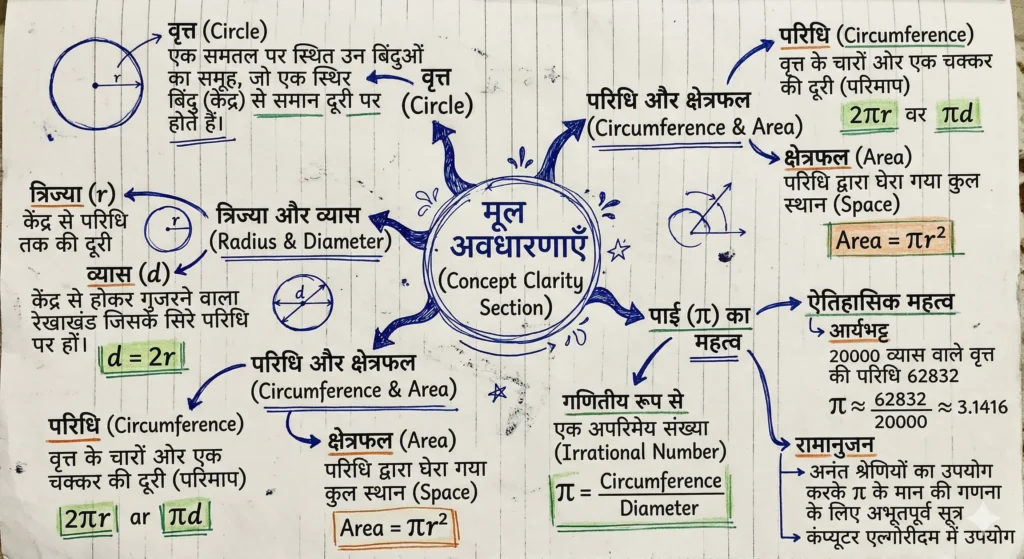 वृत्त (Circle)
एक समतल पर स्थित उन बिंदुओं
का समूह, जो एक स्थिर
बिंदु (केंद्र) से समान दूरी पर
होते हैं।
r
वृत्त
(Circle)
परिधि और क्षेत्रफल
(Circumference & Area)
परिधि (Circumference)
वृत्त के चारों ओर एक चक्कर
की दूरी (परिमाप)
2πr वर πd
क्षेत्रफल (Area)
परिधि द्वारा घेरा गया कुल
स्थान (Space)
Area = πr²
मूल
अवधारणाएँ
(Concept Clarity
Section)
त्रिज्या और व्यास
(Radius & Diameter)
त्रिज्या (r)
केंद्र से परिधि
तक की दूरी
r
व्यास (d)
केंद्र से होकर गुजरने वाला
रेखाखंड जिसके सिरे परिधि
पर हों।
d = 2r
d
परिधि और क्षेत्रफल
(Circumference & Area)
परिधि (Circumference)
वृत्त के चारों ओर एक
चक्कर की दूरी (परिमाप)
2πr ar πd
क्षेत्रफल (Area)
परिधि द्वारा घेरा गया
कुल स्थान (Space)
Area = πr²
पाई (π) का
महत्व
गणितीय रूप से
एक अपरिमेय संख्या
(Irrational Number)
π = Circumference
Diameter
ऐतिहासिक महत्व
आर्यभट्ट
20000 व्यास वाले वृत्त
की परिधि 62832
π ≈ 62832 ≈ 3.1416
20000
रामानुजन
अनंत श्रेणियों का उपयोग
करके π के मान की गणना
के लिए अभूतपूर्व सूत्र
कंप्यूटर एल्गोरीदम में उपयोग